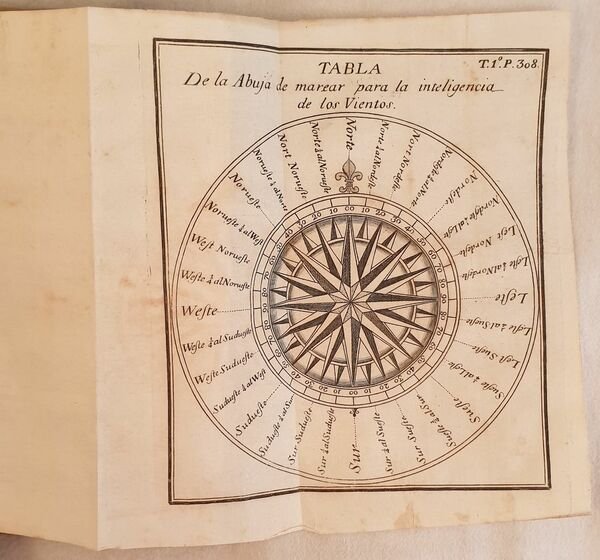 T.1º.P.308.
TABLA
De la Abuja de marear para la inteligencia
de los Vientos.
Norte
Norte ¼ al Nordeſte
Nort Nordeſte
Nordeſte ¼ al Norte
Nordeſte
Nordeſte ¼ al Leſte
Leſt Nordeſte
Leſte ¼ al Nordeſte
Leſte
Leſte ¼ al Sueſte
Leſt Sueſte
Sueſte ¼ al Leſte
Sueſte
Sueſte ¼ al Sur
Sur Sueſte
Sur ¼ al Sueſte
Sur
Sur ¼ al Sudueſte
Sur Sudueſte
Sudueſte ¼ al Sur
Sudueſte
Sudueſte ¼ al Weſt
Weſte Sudueſte
Weſte ¼ al Sudueſte
Weſte
Weſte ¼ al Norueſte
Weſt Norueſte
Norueſte ¼ al Weſt
Norueſte
Norueſte ¼ al Norte
Nort Norueſte
Norte ¼ al Norueſte
00 10 20 30 40